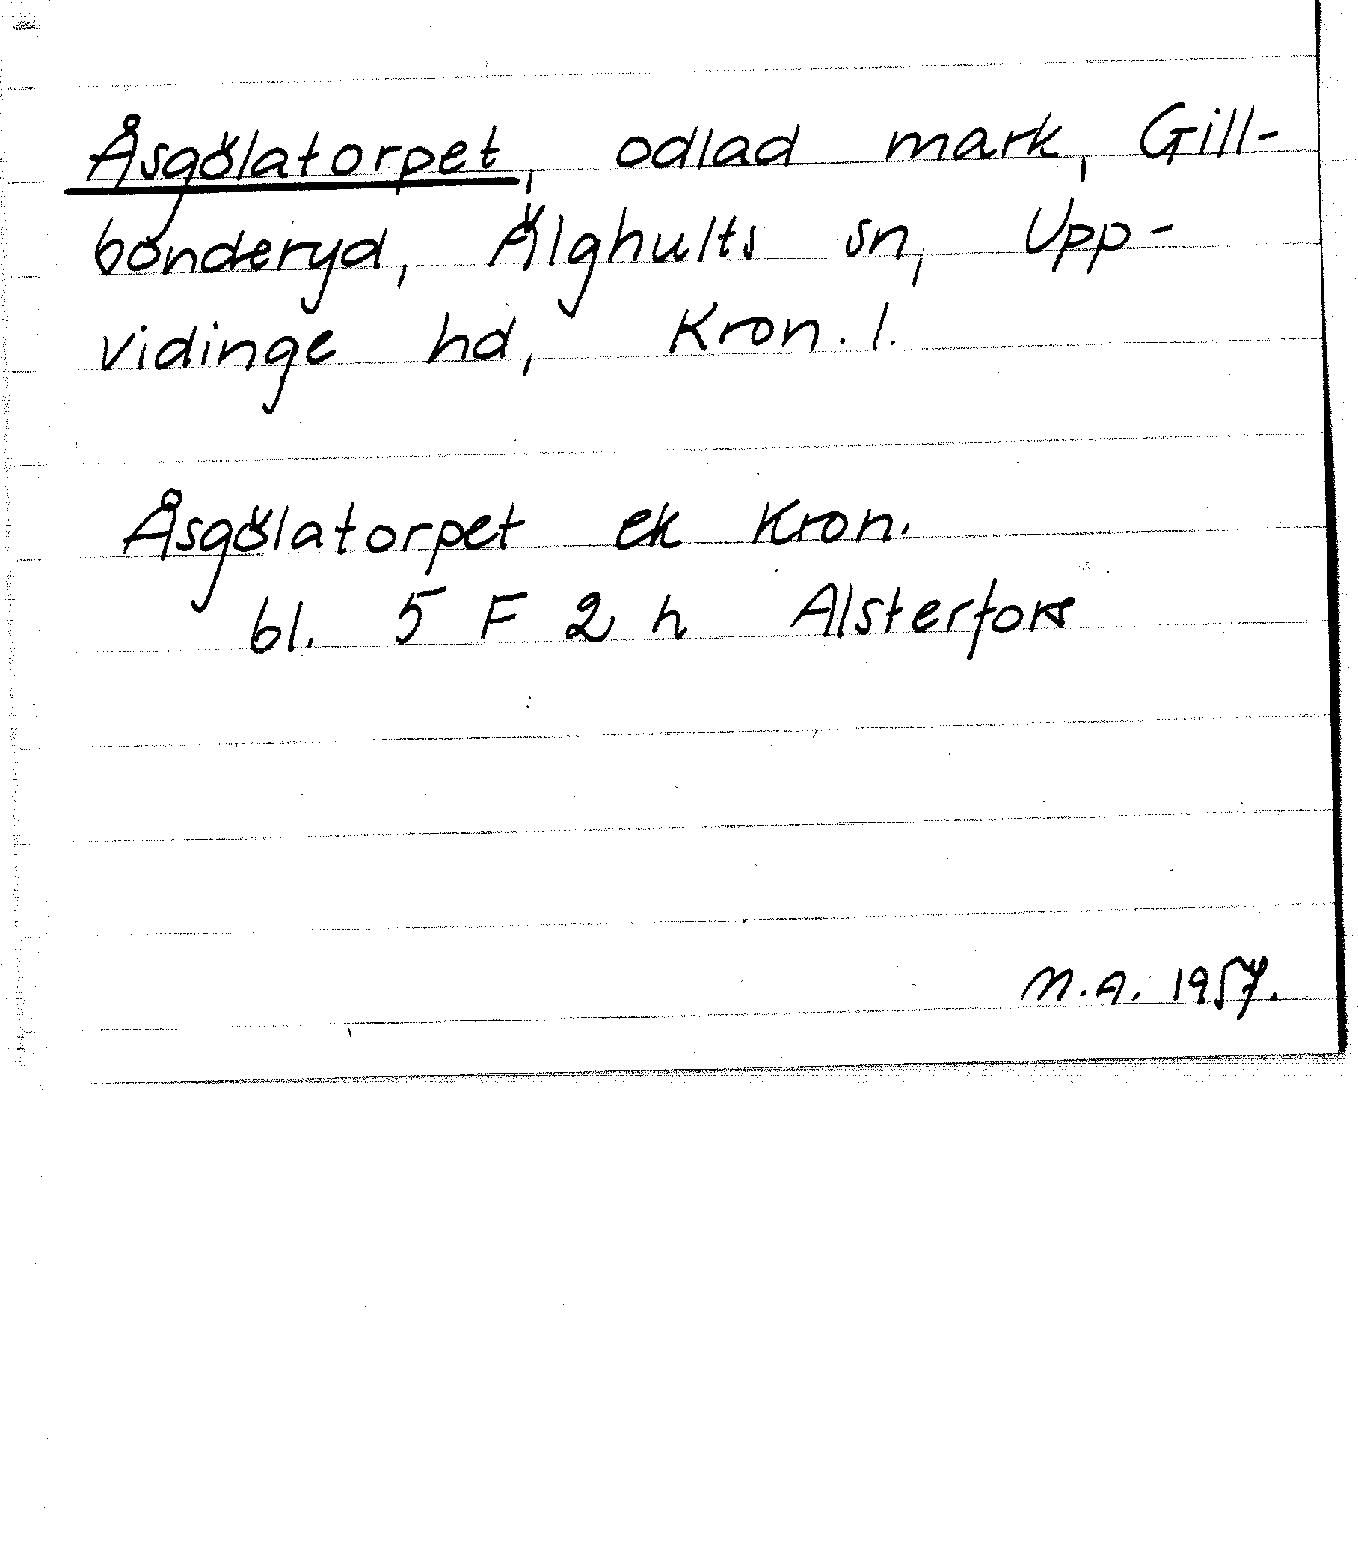 Åsgölatorpet, odlad mark, Gill-
bonderyd, Älghults sn, Upp-
vidinge hd, Kron. l.
Åsgölatorpet ek Kron.
bl. 5 F 2 h Alsterfors
M.A. 1957.